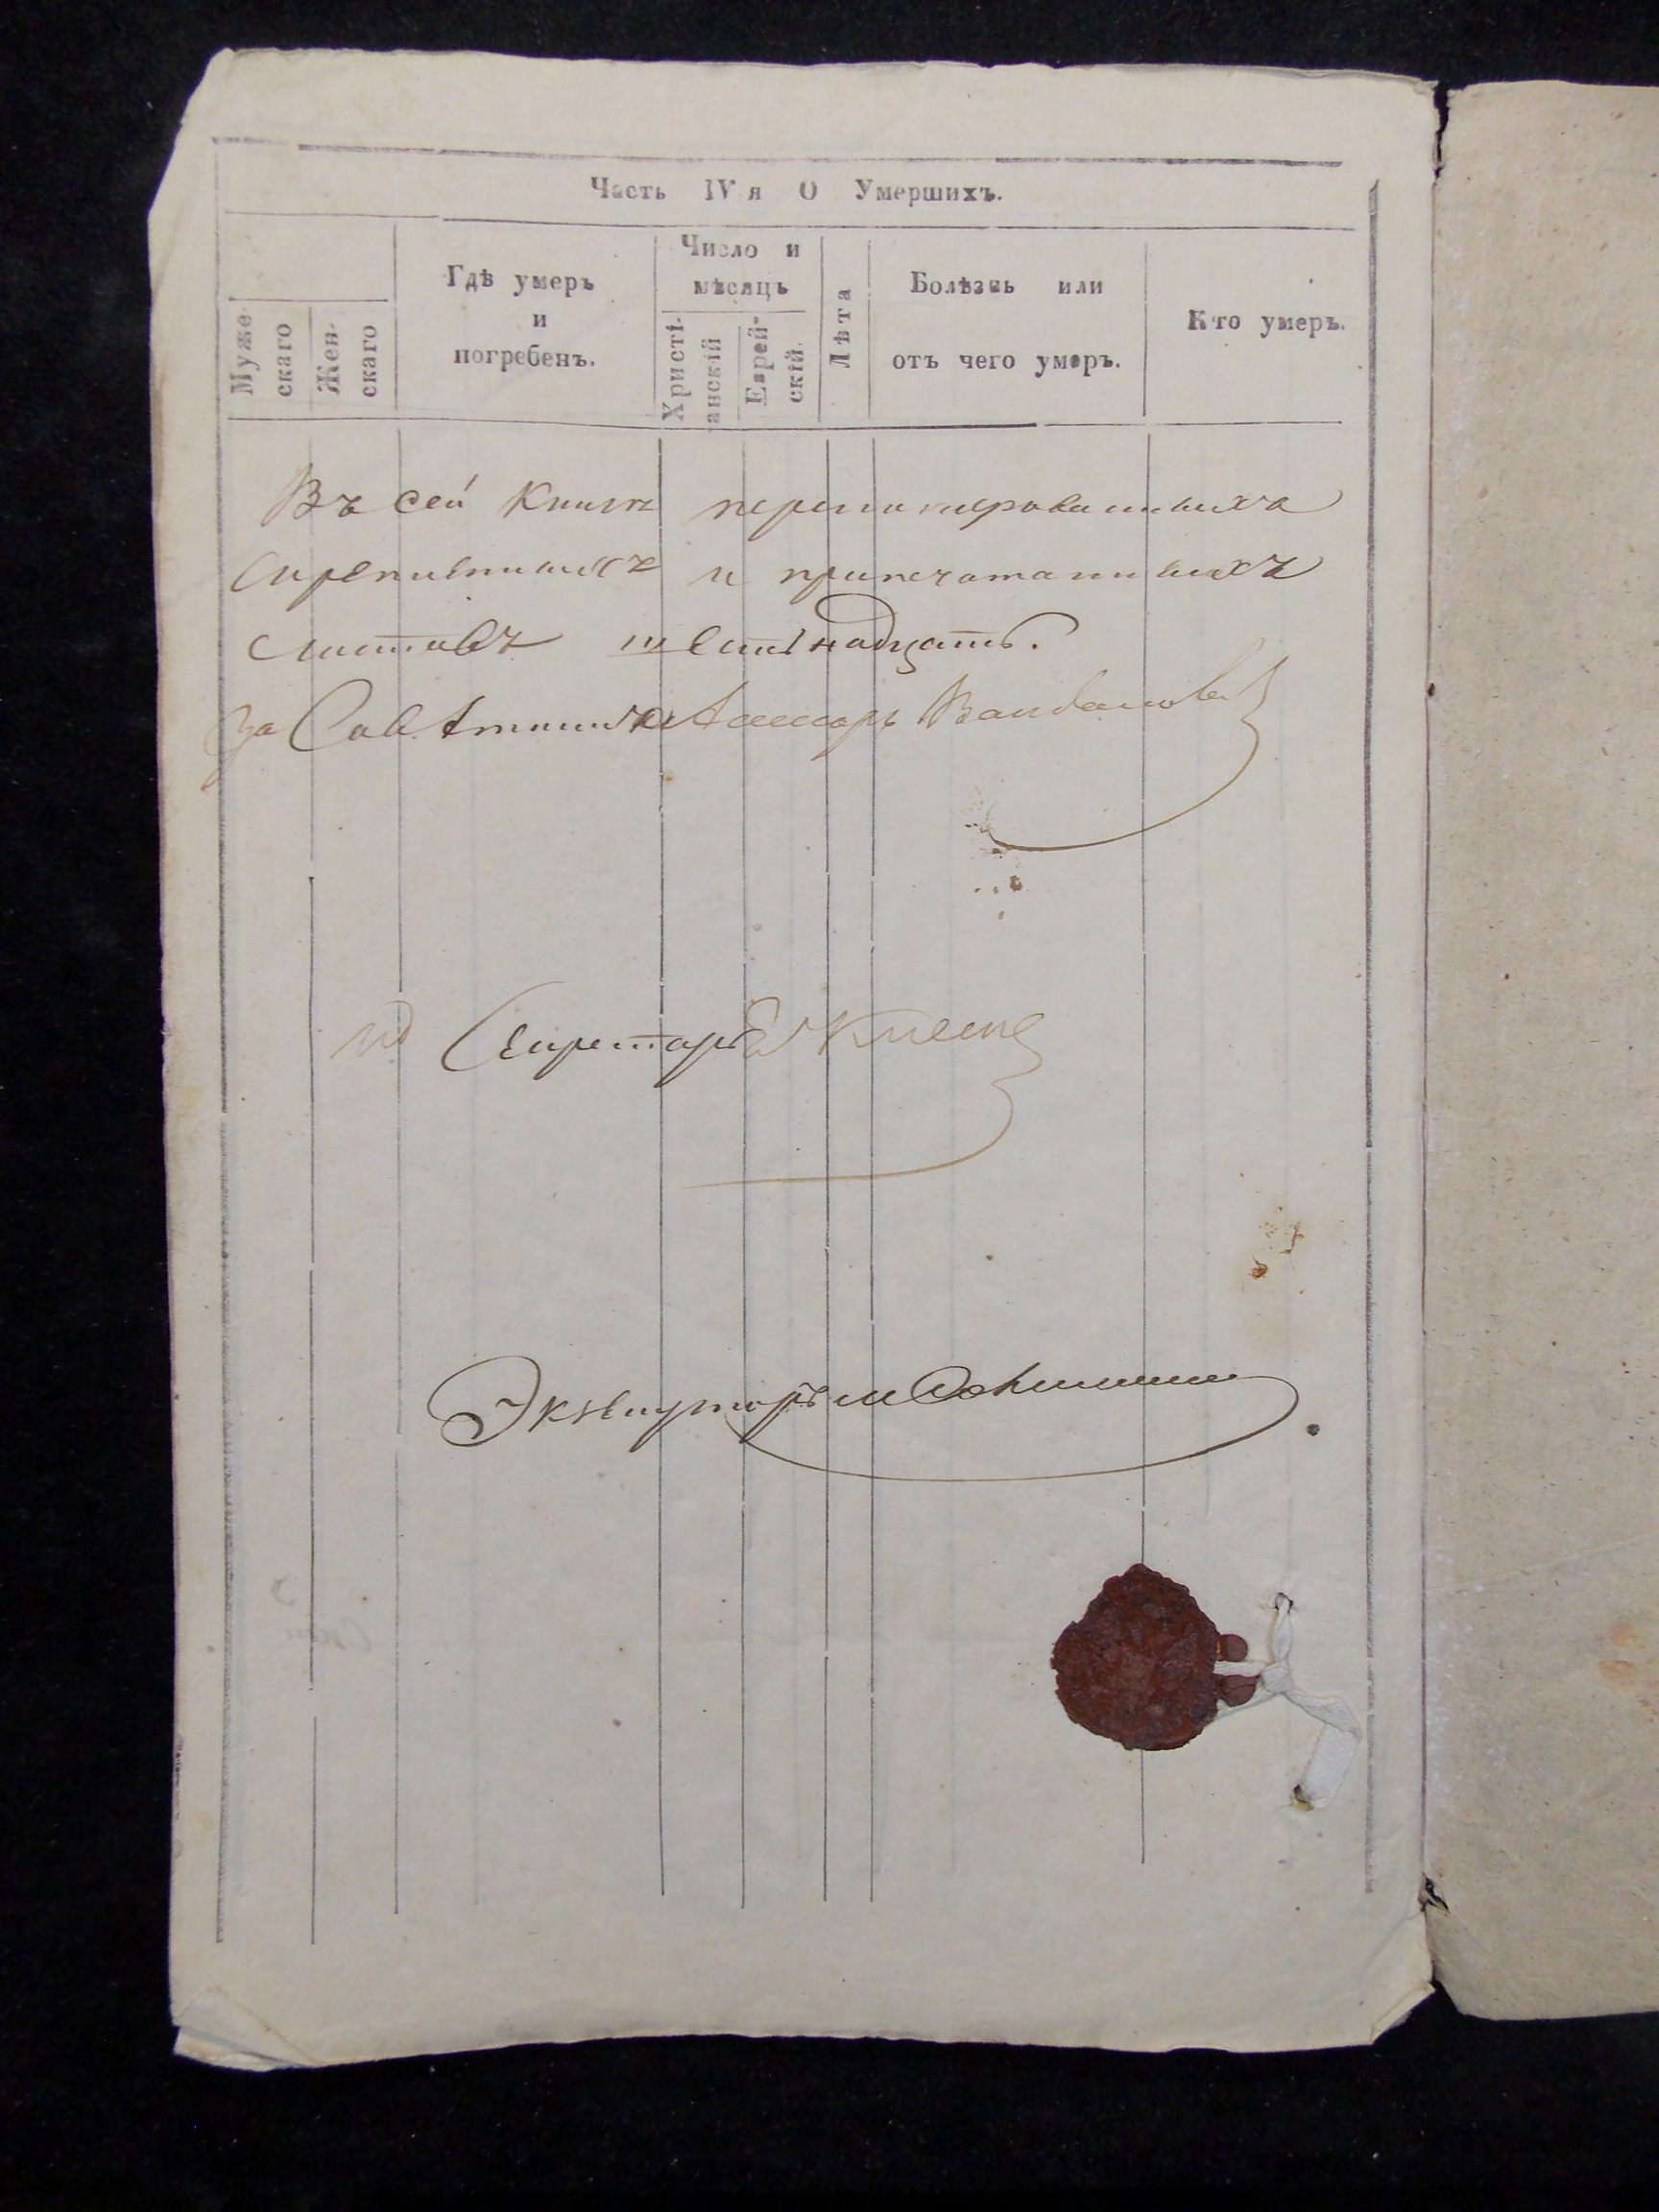 Часть IV я О Умершихъ.
Муже- скаго
Жен- скаго
Гдѣ умеръ
и
погребенъ.
Число и
мѣсяцъ
Христі- анскій
Еврей- скій.
Лѣта
Болѣзнь или
отъ чего умеръ.
Кто умеръ.
Въ сей Книгѣ перенумерованныхъ
скрепленныхъ и припечатанныхъ
листовъ шестьнадцать.
За Совѣтника Ассесоръ
Секретарь
Экзекуторъ